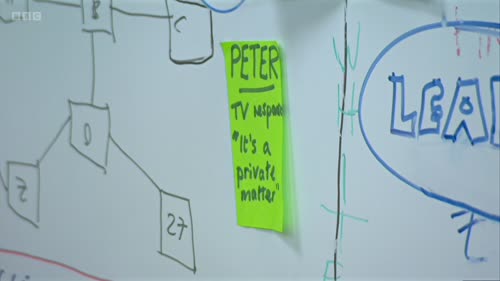 BBC
B
C
PETER
TV respons
"It's a
private
matter"
D
Z
27
LEA